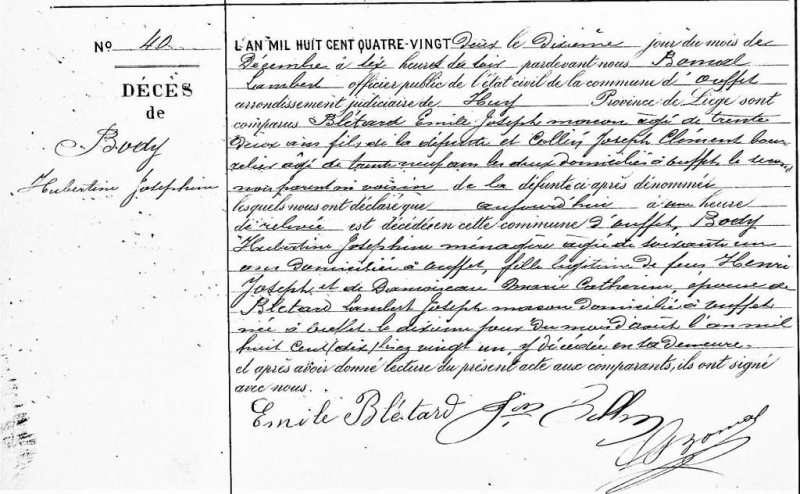 N° 40
DÉCÈS
de
Body
Hubertine Josephine
L'AN MIL HUIT CENT QUATRE-VINGT deux le dixième jour du mois de
Décembre à six heures du soir pardevant nous Bonmal
Lambert officier public de l'état civil de la commune d'Ouffet
arrondissement judiciaire de Huy Province de Liège sont
comparus Blétard Emile Joseph macon agé de trente
deux ans fils de la défunte et Collin Joseph Clément bour
relier âgé de trente neuf ans les deux domicilié à ouffet le second
non parent en voisin de la défunte ci après dénommée
lesquels nous ont déclaré que aujourd'hui à une heure
de relevée est décédée en cette commune d'ouffet Body
Hubertine Josephine ménagère agée de soixante un
ans domiciliée à ouffet, fille légitime de feus Henri
Joseph et de Damoiseau Marie Catherine, épouse de
Blétard Lambert Joseph macon domicilié à ouffet
née à ouffet le dixième jour du mois d'août l'an mil
huit cent (dix) vingt un, y décédée en sa demeure.
et après avoir donné lecture du présent acte aux comparants, ils ont signé
avec nous.
Emile Blétard Jos Collin